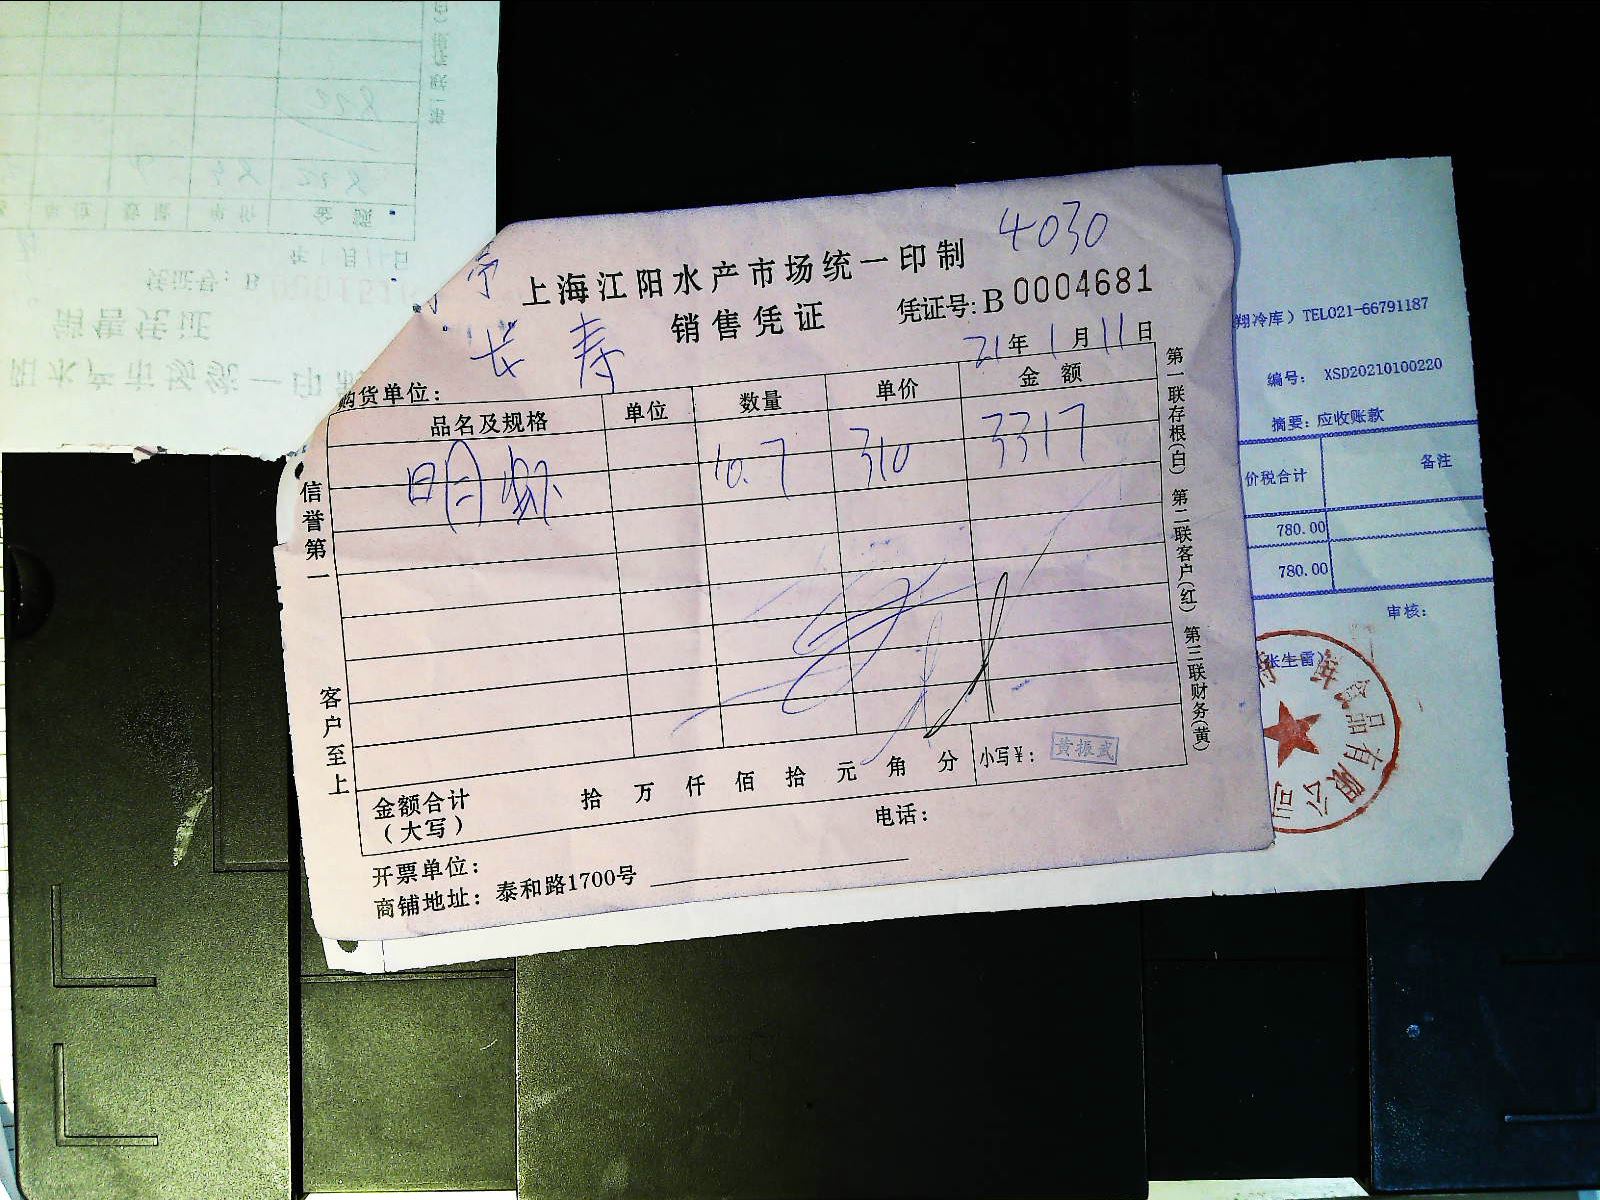 4030
上海江阳水产市场统一印制
销售凭证
凭证号: B 0004681
长寿
21年1月11日
购货单位:
品名及规格 单位 数量 单价 金额
明虾 10.7 310 3317
信誉第一
客户至上
第一联存根(白) 第二联客户(红) 第三联财务(黄)
金额合计
(大写)
拾 万 仟 佰 拾 元 角 分
小写¥:
黄振武
电话:
开票单位:
商铺地址: 泰和路1700号
翔冷库) TEL021-66791187
编号: XSD20210100220
摘要: 应收账款
价税合计 备注
780.00
780.00
审核:
张生雷)
食品有限公司
阳水产市场统一印制
销售凭证
凭证号: B
年1月11日
单位 数量 单价 金额